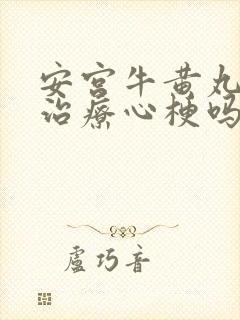 安宫牛黄丸
治疗心梗吗
盧巧音